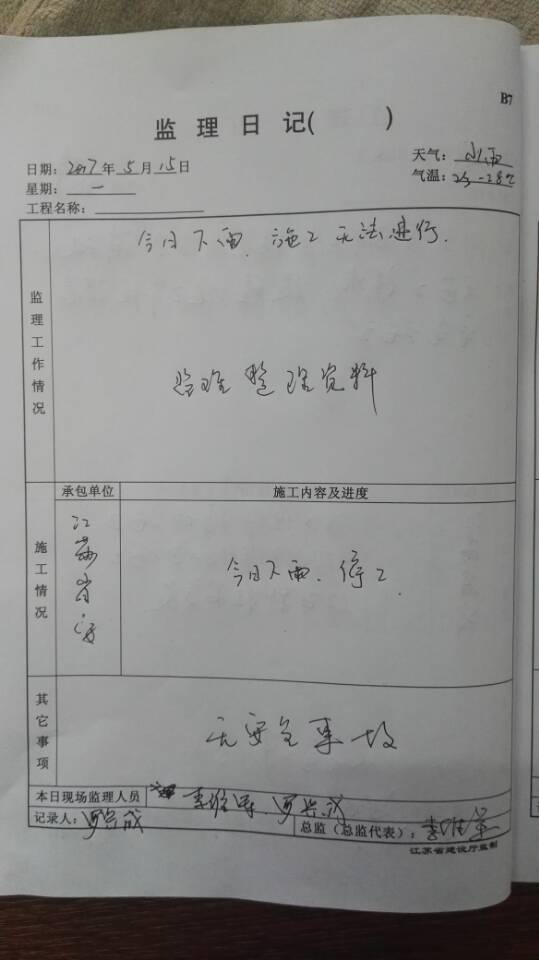 B7
监理日记( )
日期：2017年5月15日 天气：小雨
星期：一 气温：23-28℃
工程名称：
监理工作情况
今日下雨、施工无法进行.
监理整理资料
施工情况
承包单位 施工内容及进度
江苏省
今日下雨、停工.
其它事项
无安全事故
本日现场监理人员
记录人：
总监（总监代表）：
江苏省建设厅监制